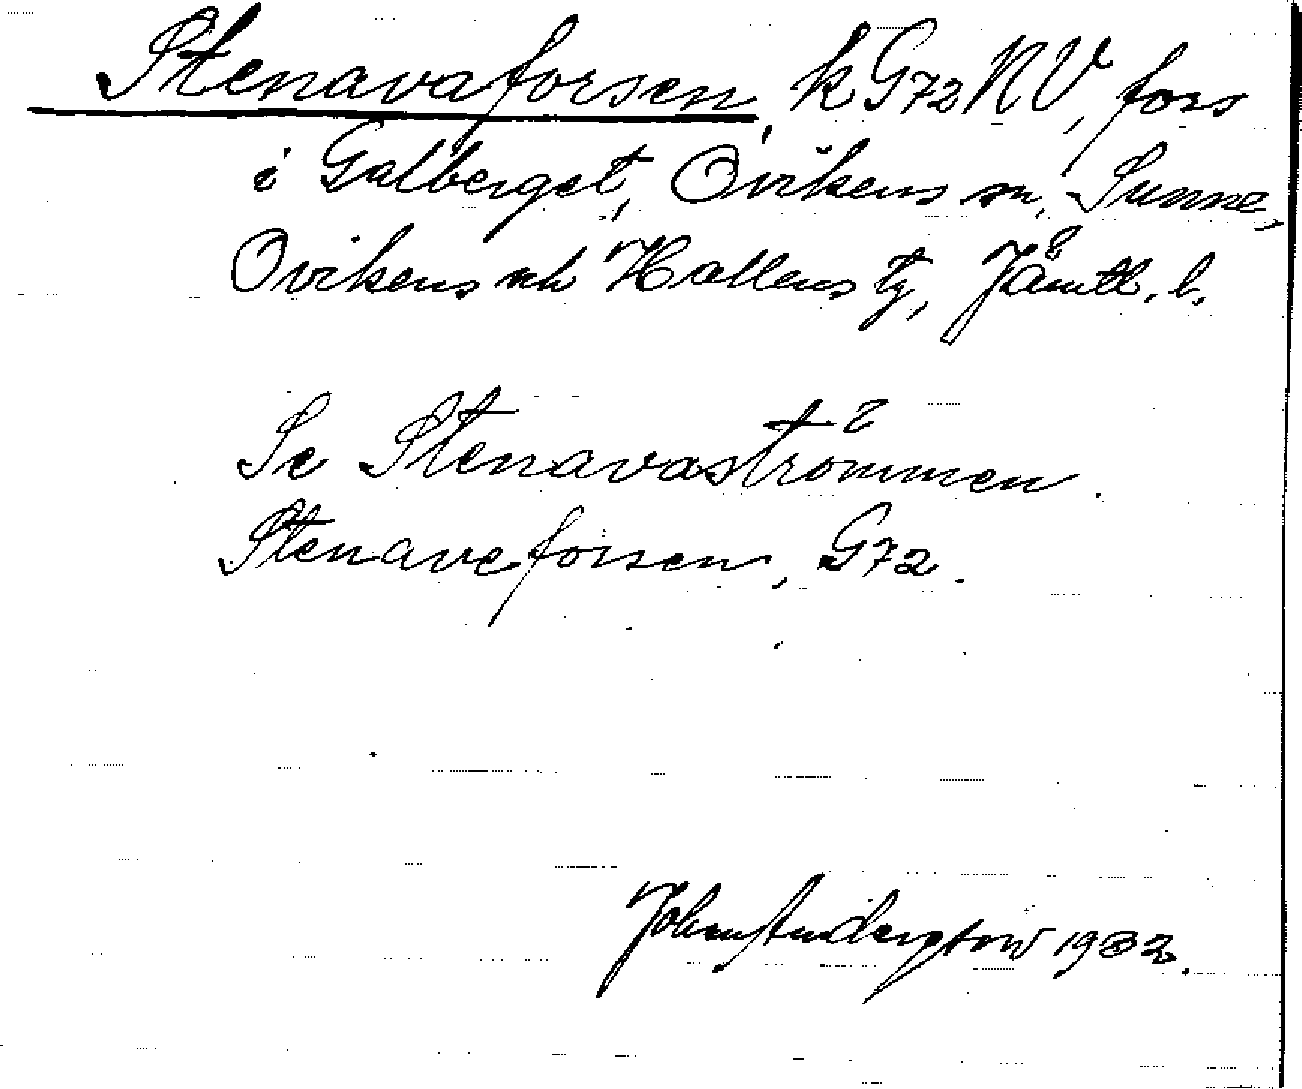 Stenavaforsen, k G72 NV, fors
i Galberget, Ovikens sn, Sunne,
Ovikens och Hallens tg, Jämtl. l.
Se Stenavaströmmen.
Stenaveforsen, G72.
John Andersson 1932.